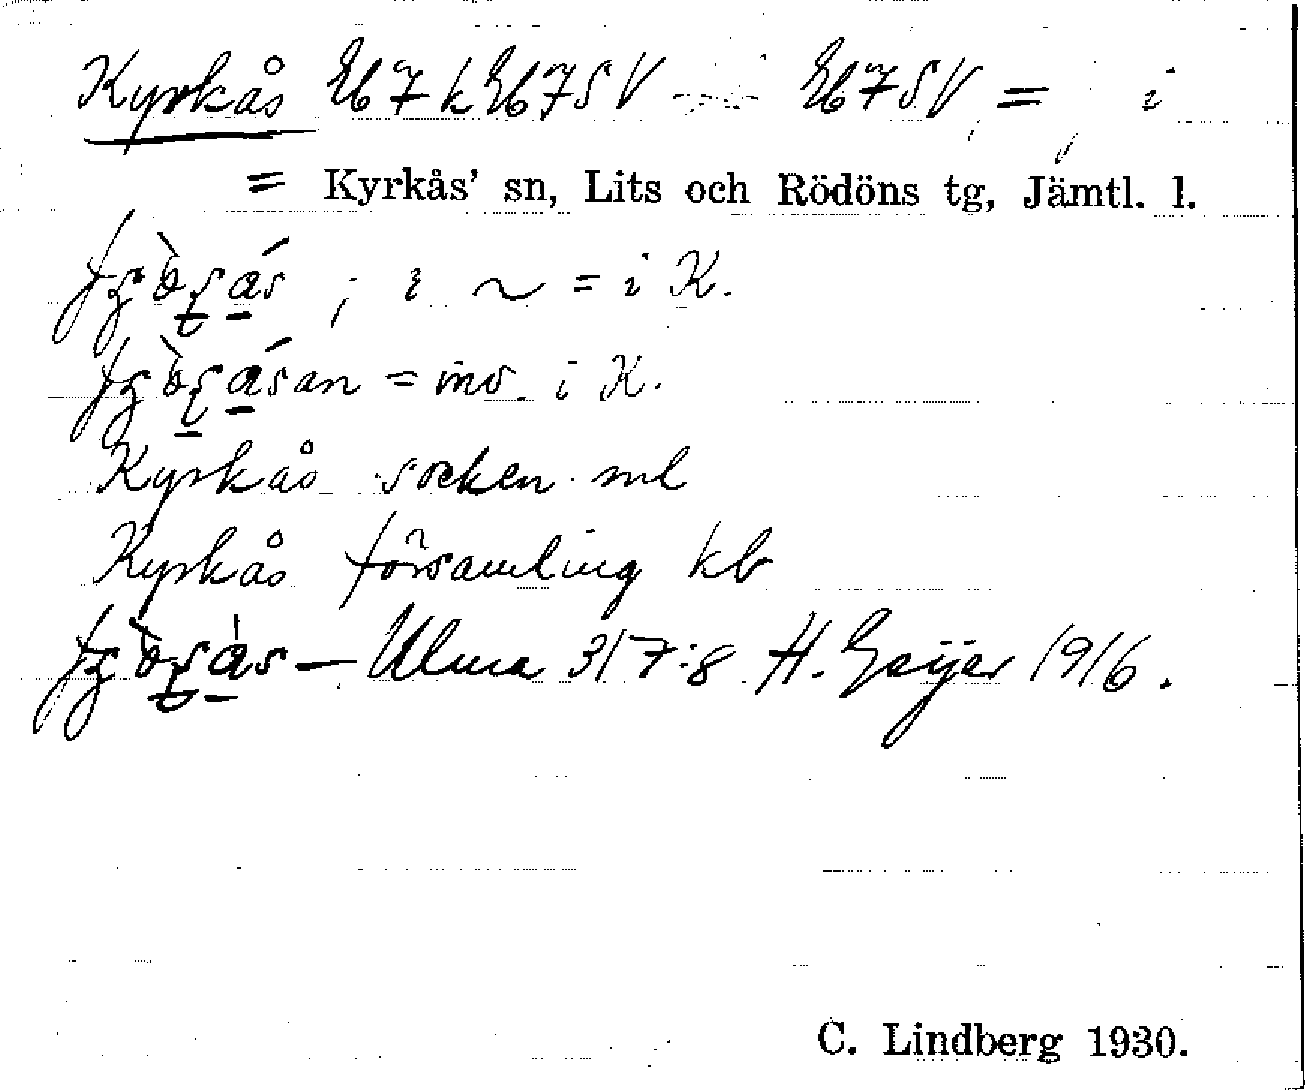 Kyrkås Eb 7 k Eb 7 SV Eb 7 SV, = i
= Kyrkås' sn, Lits och Rödöns tg, Jämtl. l.
; i ~ = i K.
= inv. i K.
Kyrkås socken ml
Kyrkås församling kb
— Ulma 317:8 H. Geijer 1916.
C. Lindberg 1930.